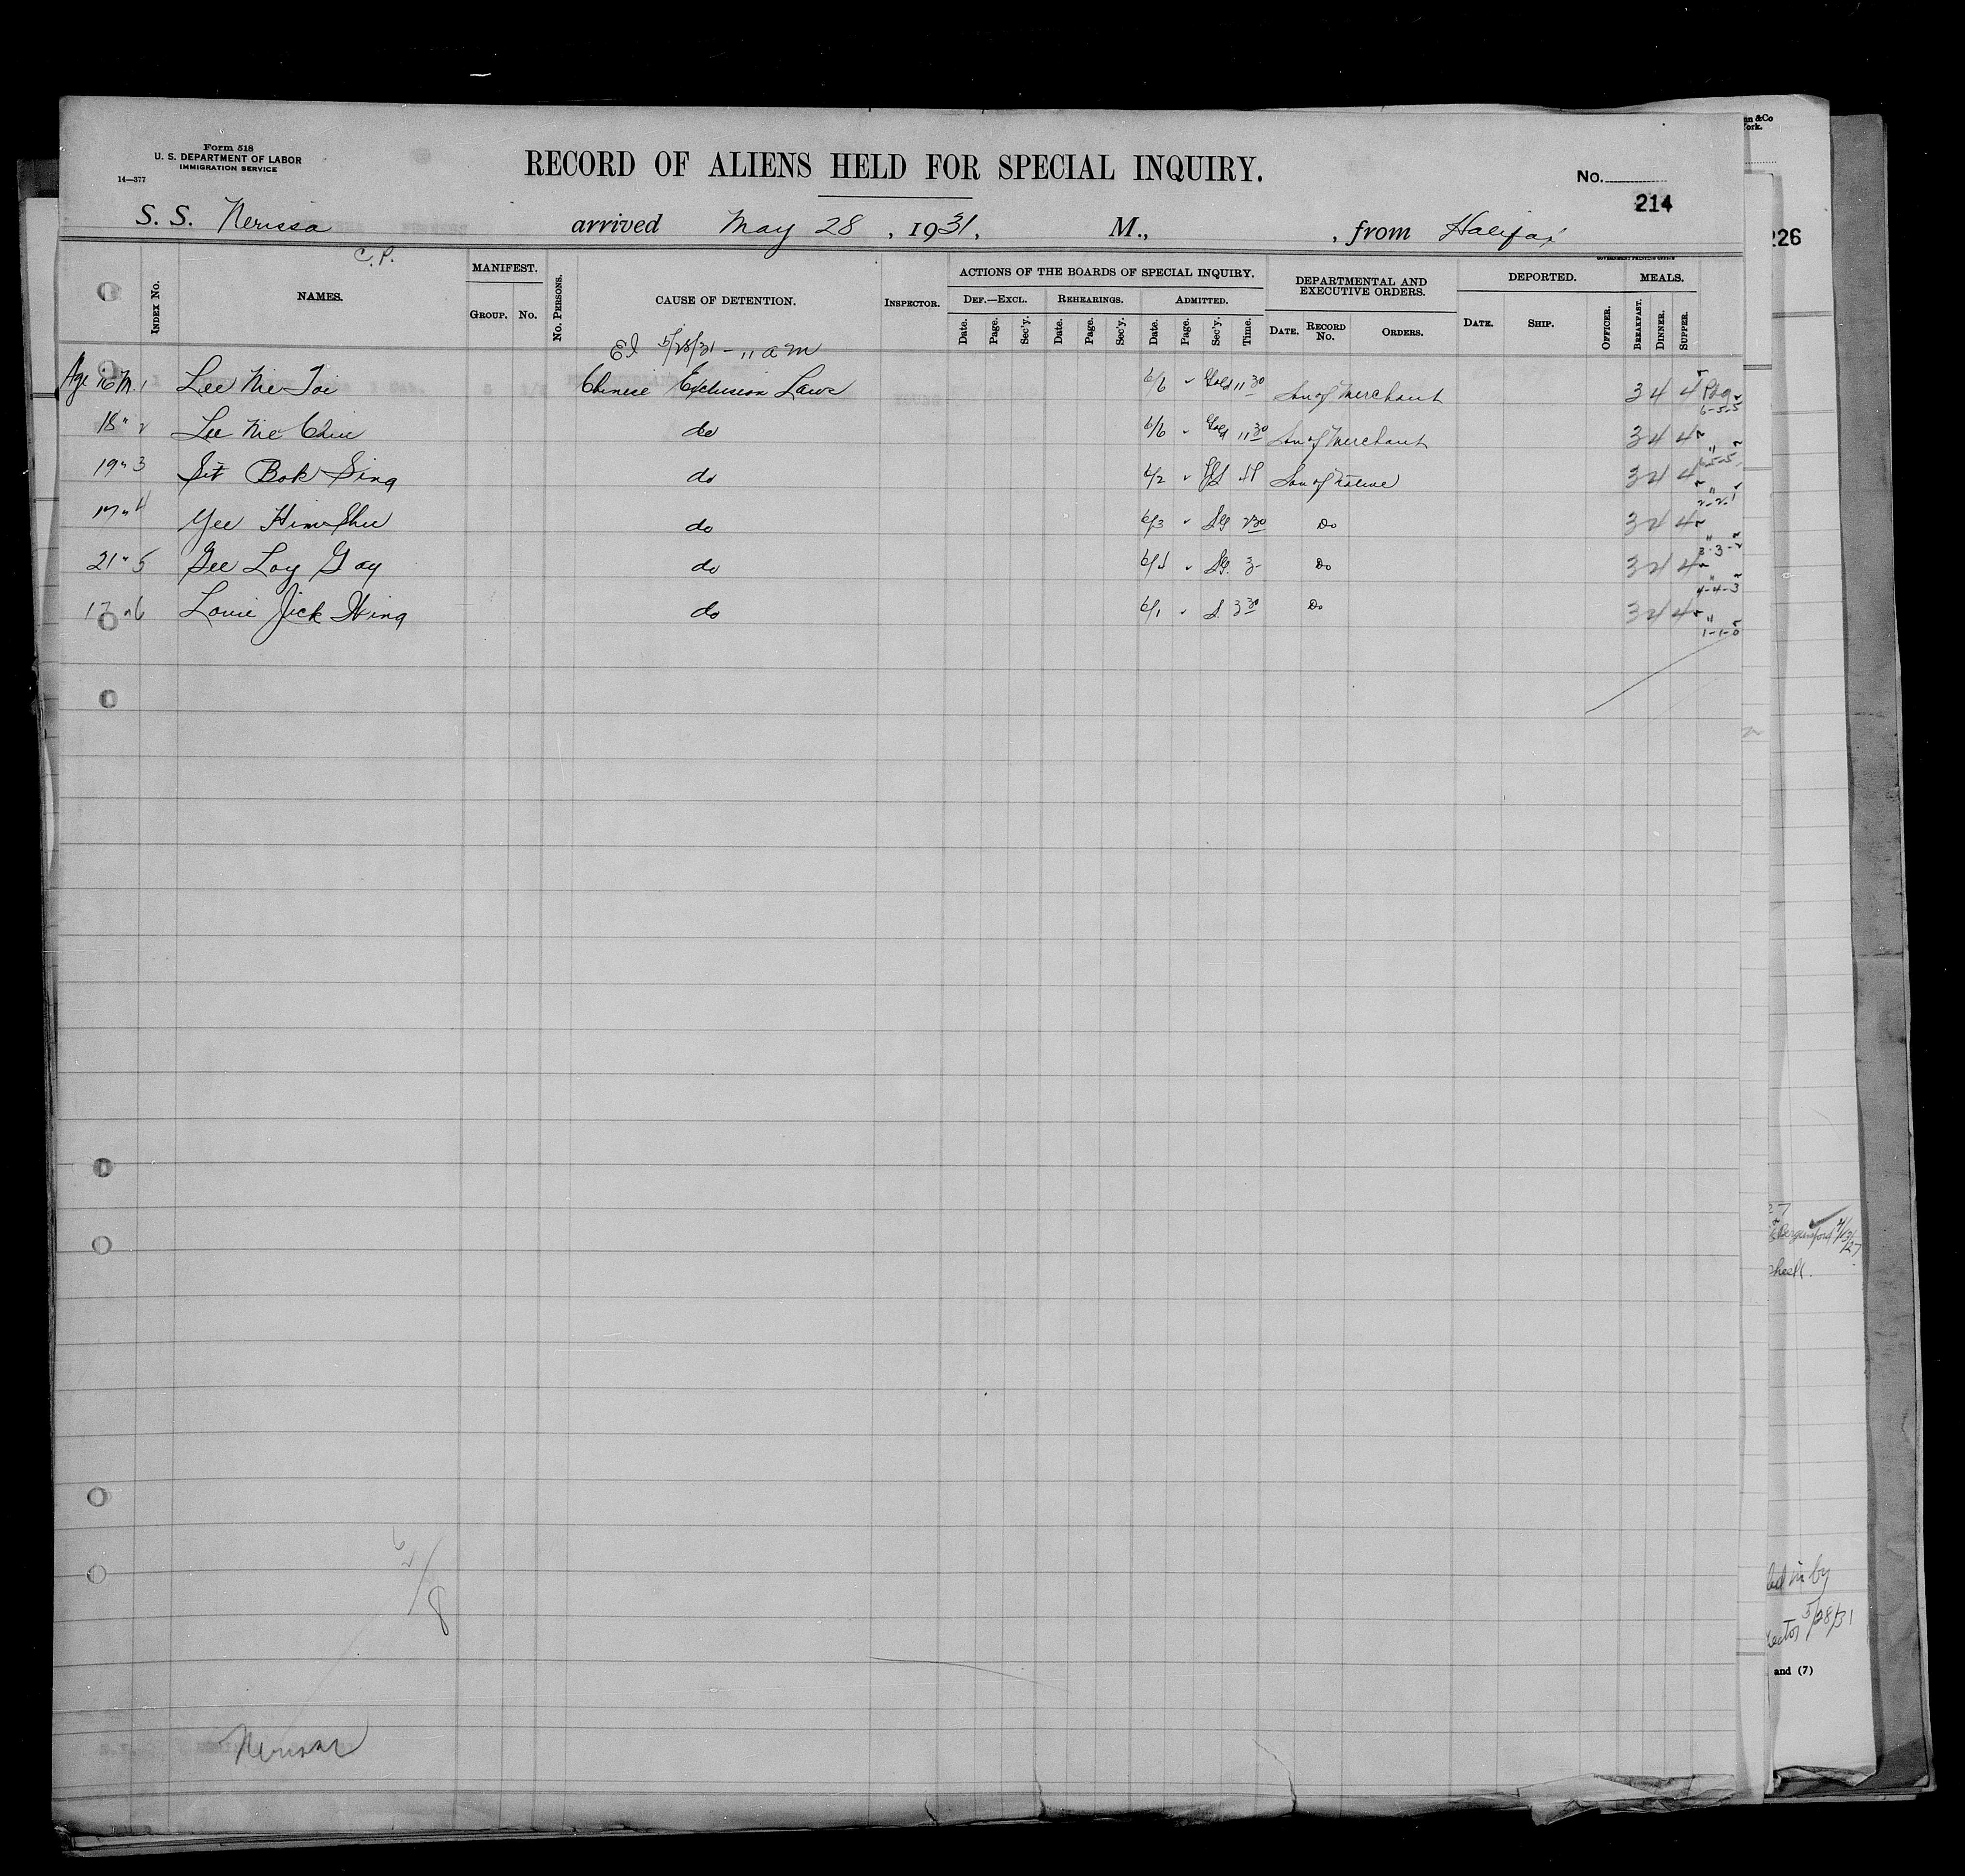 Form 518
U. S. DEPARTMENT OF LABOR
IMMIGRATION SERVICE
14—377
RECORD OF ALIENS HELD FOR SPECIAL INQUIRY.
No.
214
S. S. Nerissa arrived May 28, 1931, M., from Halifax
C.P.
GOVERNMENT PRINTING OFFICE
INDEX NO. NAMES. MANIFEST. GROUP. NO. NO. PERSONS. CAUSE OF DETENTION. INSPECTOR. ACTIONS OF THE BOARDS OF SPECIAL INQUIRY. DEPARTMENTAL AND EXECUTIVE ORDERS. DEPORTED. MEALS.
DEF.—EXCL. REHEARINGS. ADMITTED.
Date. Page. Sec'y. Date. Page. Sec'y. Date. Page. Sec'y. Time. DATE. RECORD No. ORDERS. DATE. SHIP. OFFICER. BREAKFAST. DINNER. SUPPER.
EI 5/28/31 - 11 am
Age 16 M. 1 Lee Nie Toi Chinese Exclusion Laws 6/6 11 30 Son of Merchant 3 4 4
6-5-5
18 " 2 Lee Nie Chiu do 6/6 11 30 Son of Merchant 3 4 4 "
6-5-5
19 " 3 Sit Bok Sing do 6/2 Son of Native 3 4 4 "
2-2-1
17 " 4 Yee Him Shu do 6/3 2 30 Do 3 4 4 "
3-3-2
21 " 5 Gee Loy Goy do 3 Do 3 4 4 "
4-4-3
17 " 6 Louie Jick Hing do 6/1 3 30 Do 3 4 4 "
1-1-0
Nerissa
226
check.
5/28/31
and (7)